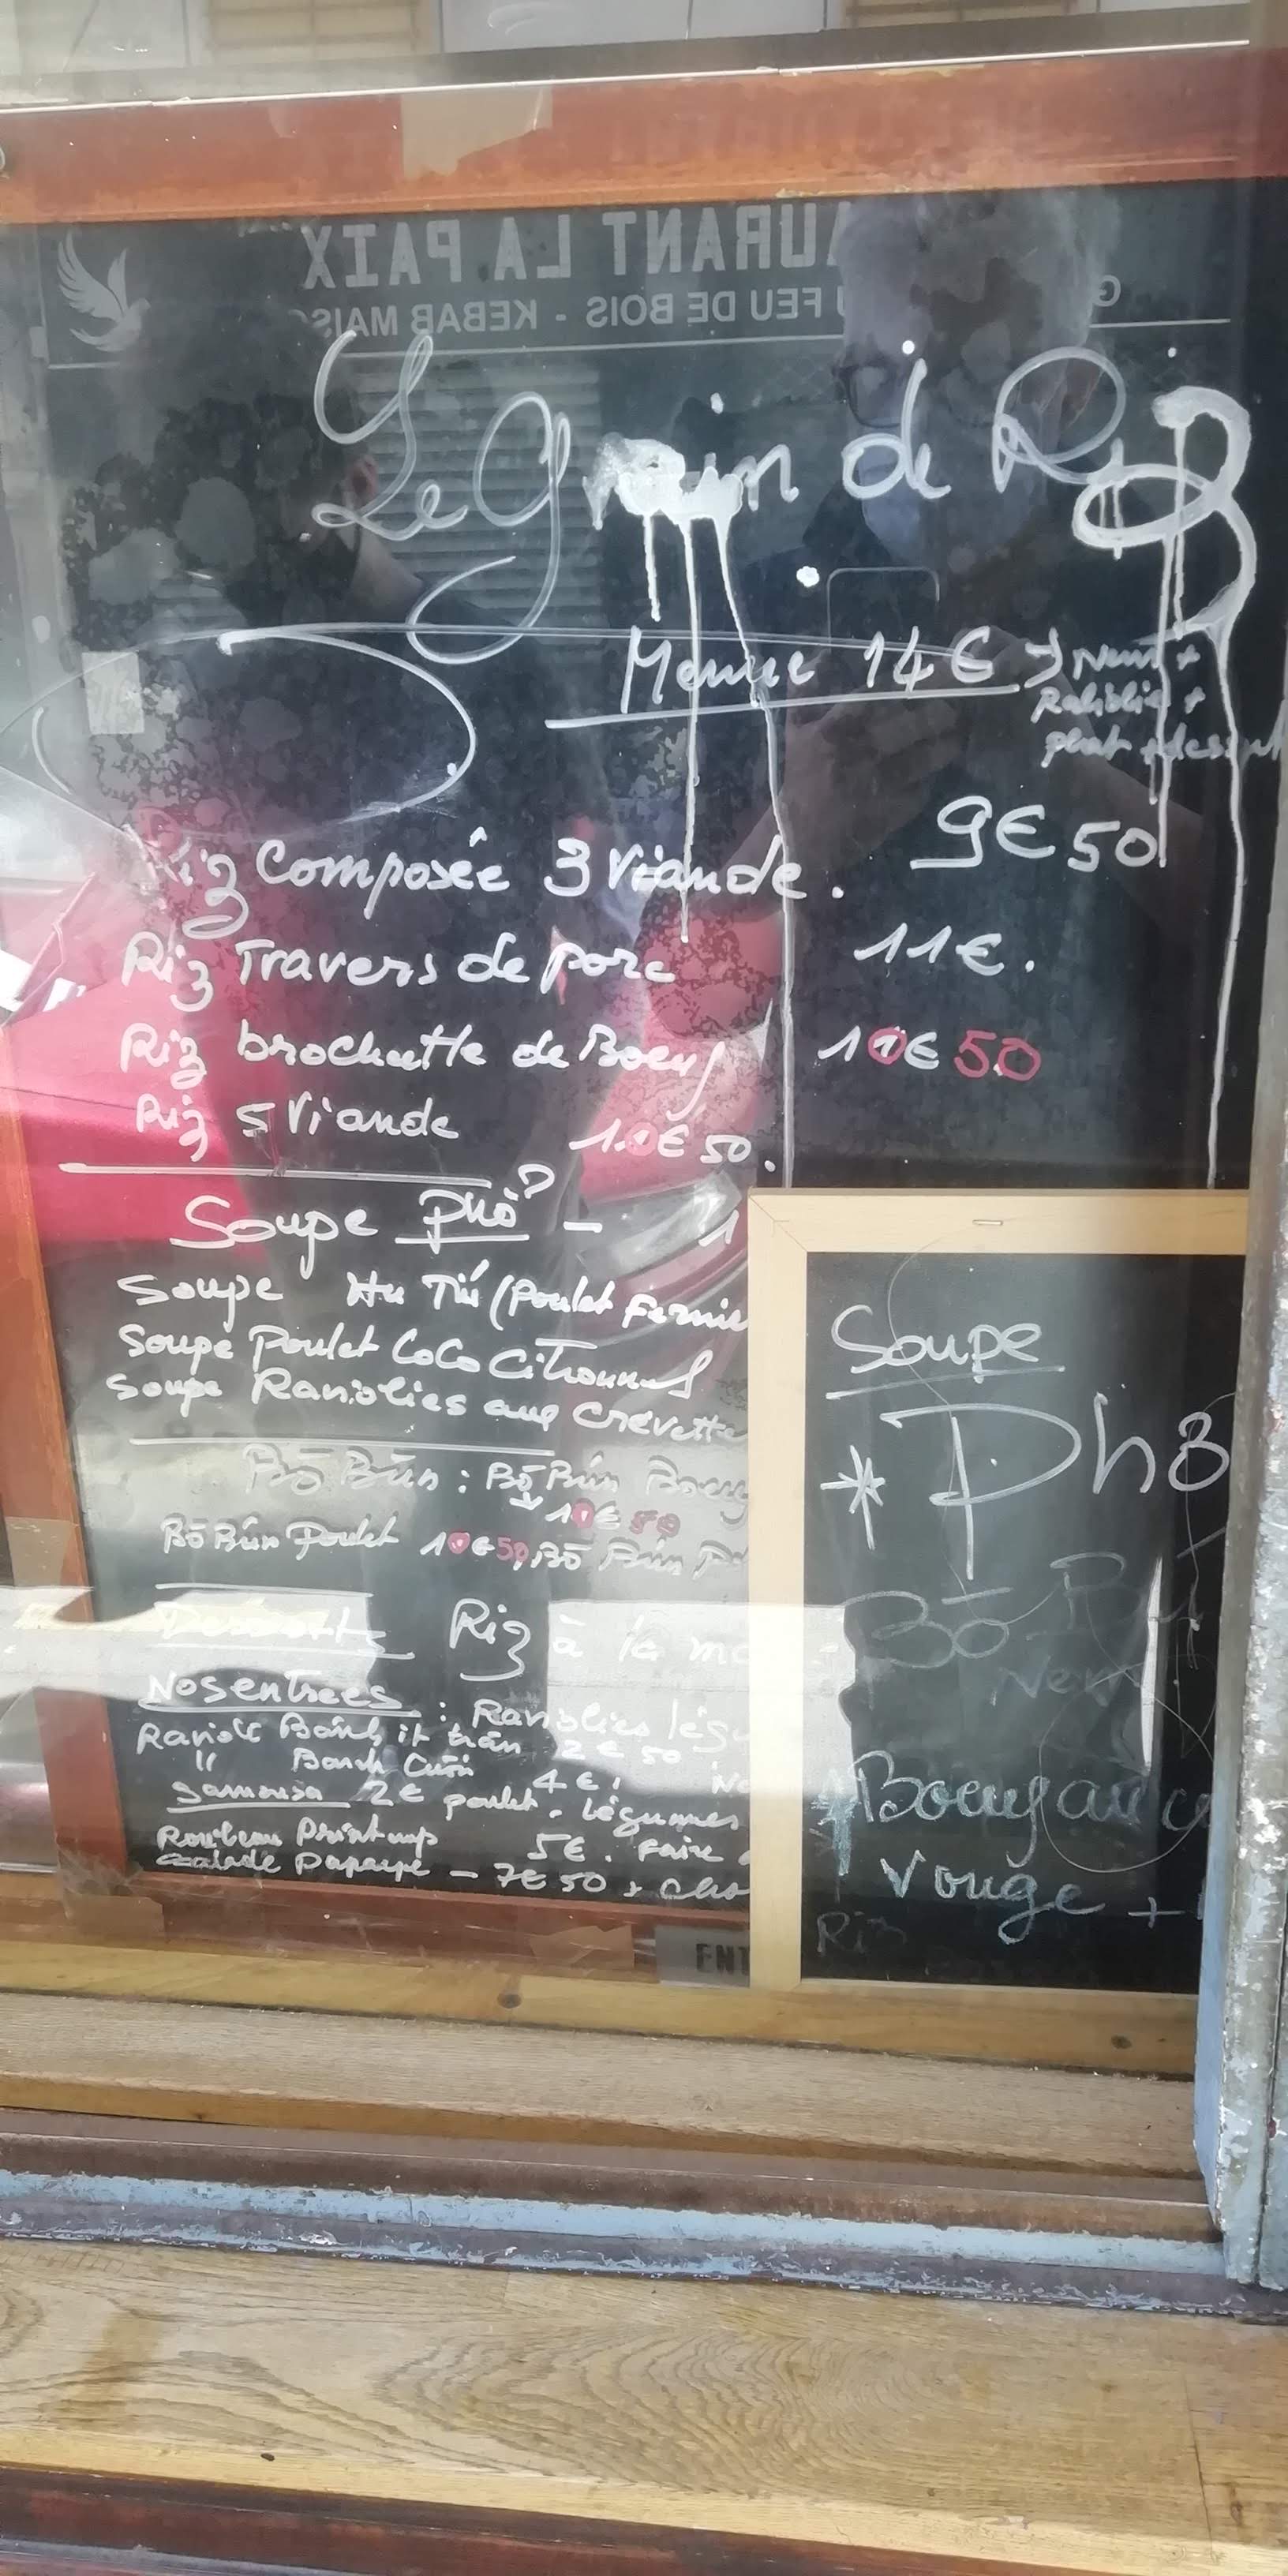 AURANT LA PAIX
FEU DE BOIS - KEBAB MAIS
Le Grain de Riz
Menue 14€ → Nem +
Raviolie +
plat + dessert
Riz Composée 3 Viande. 9€50
Riz Travers de porc 11€.
Riz brochette de Boeuf 10€50
Riz 5 Viande 10€50.
Soupe Phở - 1
Soupe Hu Tiú (Poulet Fermie
Soupe Poulet CoCo Citronnel
Soupe Raviolies aux Crevette
Bō Bún : Bō Bún Boeuf
10€50
Bō Bún Poulet 10€50, Bō Bún
Riz à la
Nos entrees : Raviolies lég
Ravioli Bánh it trân 2€50
" Banh Cuôn 4€
Samousa 2€ poulet. légumes
Rouleau Printemps 5€. Faire
Salade Papaye - 7€50 + cho
Soupe
* Phở
Bō
Nem
Boeuf au
rouge +
Riz
ENT